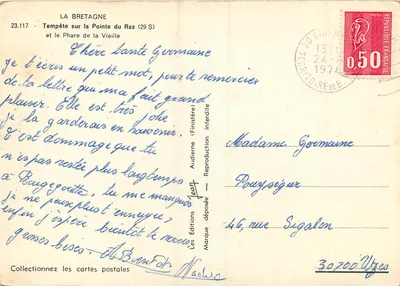 LA BRETAGNE
23.117 Tempête sur la Pointe du Raz (29 S)
et le Phare de la Vieille
Chère tante Germaine
je t'écris un petit mot, pour te remercier
de ta lettre qui m'a fait grand
plaisir. Elle est très jolie
je la garderais en souvenir.
C'est dommage que tu
n'es pas restée plus longtemps
à tu me manques
je ne peux plus t'ennuyer?
enfin j'espère bientôt te revoir
grosses bises.
Collectionnez les cartes postales
Les Editions Audierne (Finistère)
Marque déposée — Reproduction interdite
13
24
1974
REPUBLIQUE FRANCAISE
0,50
Madame Germaine
Pouységur
46, rue Sigalon
30700 Uzès